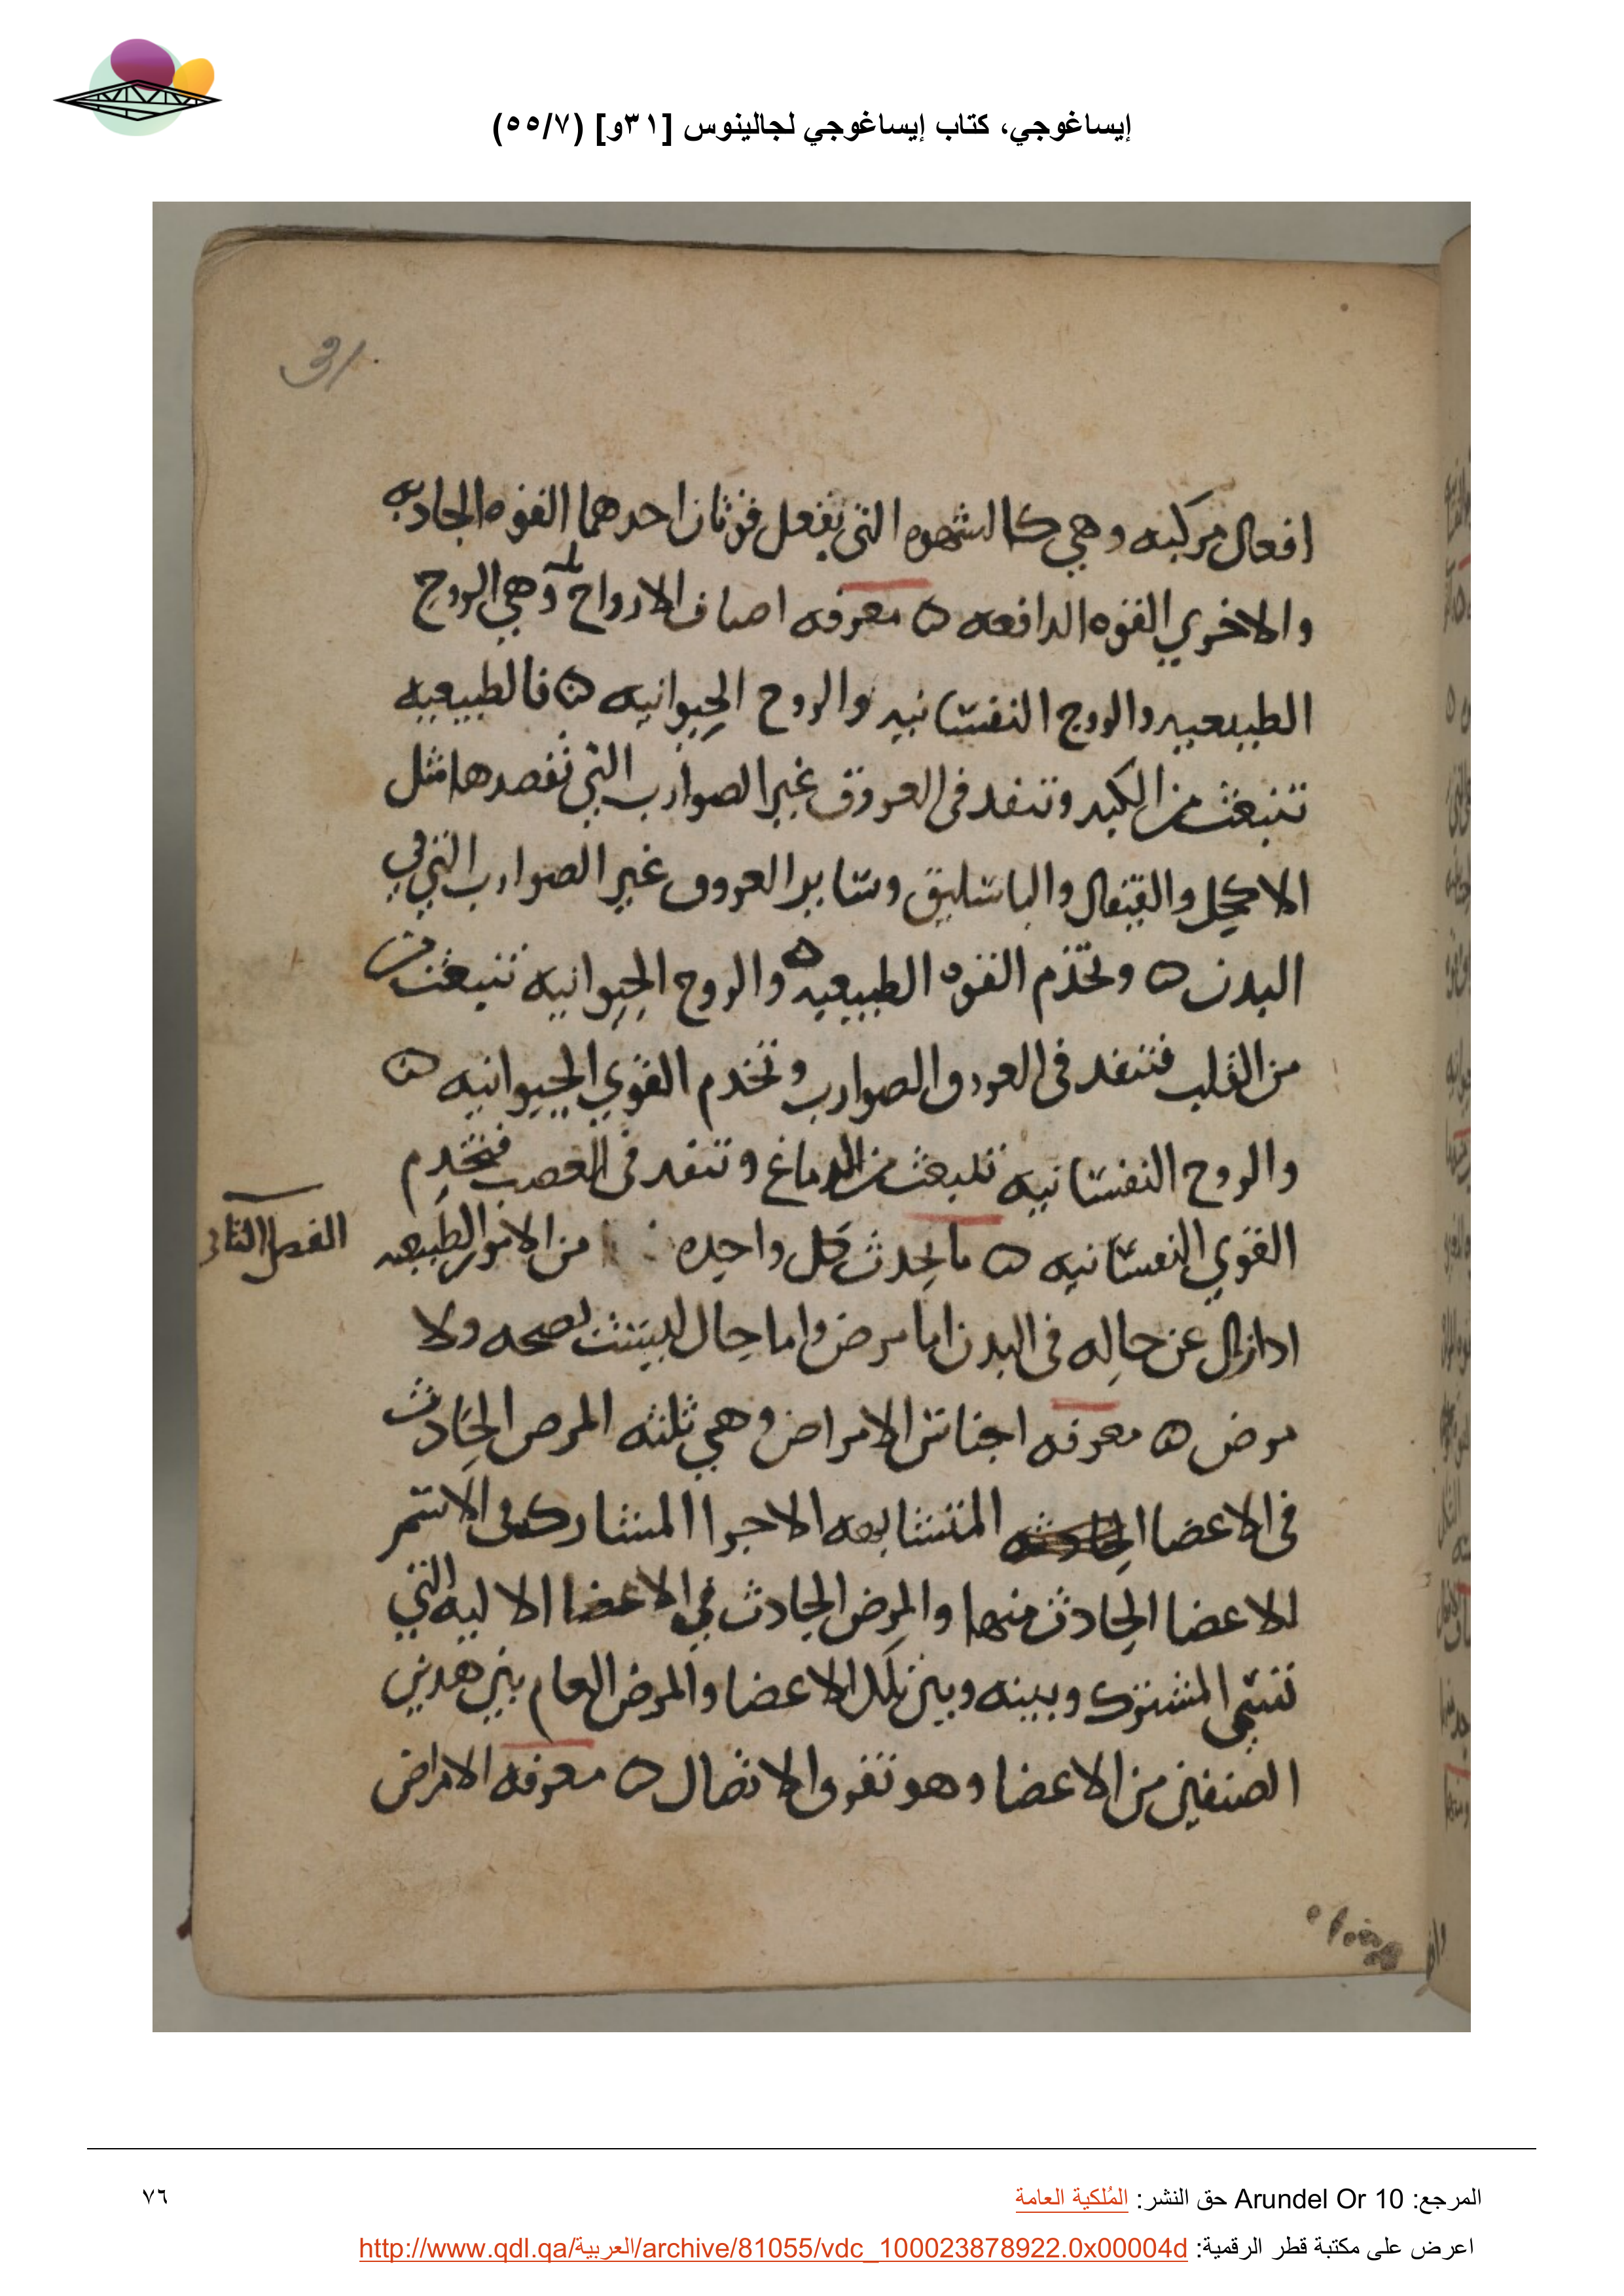 إيساغوجي، كتاب إيساغوجي لجالينوس [٣١و] (٥٥/٧)
31
افعال مركبه وهي كالشهوه التي تفعل قوتان احدهما القوه الجادبه
والاخري القوه الدافعه ه معرفه اصناف الارواح وهي الروح
الطبيعيه والروح النفسانيه والروح الحيوانيه ه فالطبيعيه
تنبعث من الكبد وتنفد في العروق غير الصوارب التي تفصدها مثل
الاكحل والقيفال والباسليق وساير العروق غير الصوارب التي في
البدن ه وتخدم القوه الطبيعيه ه والروح الحيوانيه تنبعث من
من القلب فتنفد في العروق الصوارب وتخدم القوي الحيوانيه ه
والروح النفسانيه تنبعث من الدماغ وتنفد في العصب فتخدم
القوي النفسانيه ه ما يحدث كل واحده من الامور الطبيعه
الفصل الثاني
ادا زال عن حاله في البدن اما مرض واما حال ليست بصحه ولا
مرض ه معرفه اجناس الامراض وهي ثلثه المرض الحادث
في الاعضا الحادثه المتشابهه الاجزا المشاركه في الاسم
للاعضا الحادث منها والمرض الحادث في الاعضا الاليه التي
المشترك وبينه وبين كل الاعضا والمرض العام بين هدين
الصنفين من الاعضا وهو تفرق الاتصال ه معرفه الامراض
المرجع: Arundel Or 10 حق النشر: المُلكية العامة
٧٦
اعرض على مكتبة قطر الرقمية: http://www.qdl.qa/العربية/archive/81055/vdc_100023878922.0x00004d